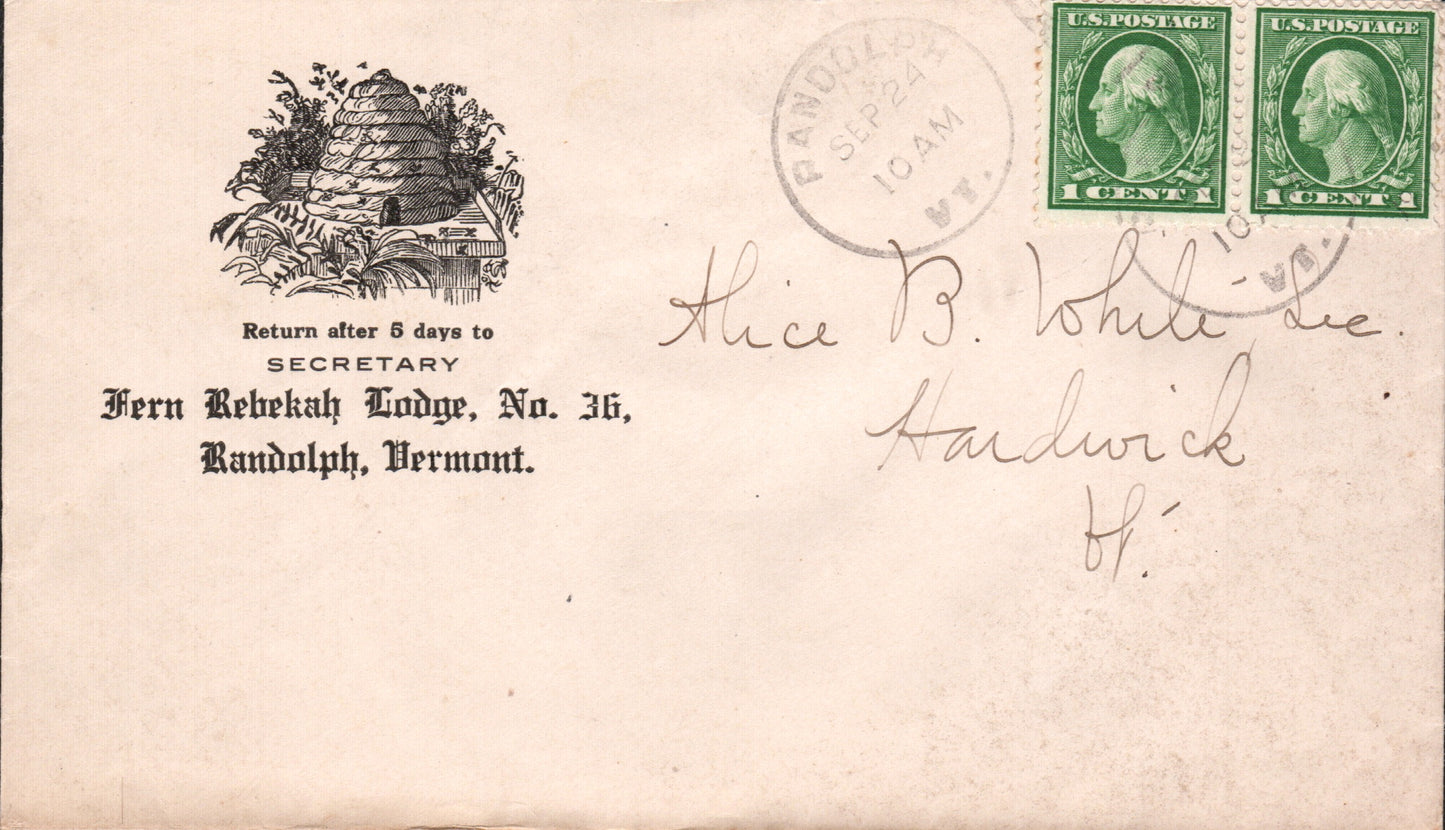 Return after 5 days to
SECRETARY
Fern Rebekah Lodge, No. 36,
Randolph, Vermont.
RANDOLPH
SEP 24
10 AM
VT.
U.S. POSTAGE
1 CENT 1
U.S. POSTAGE
1 CENT 1
10 A
VT.
Alice B. White Sec.
Hardwick
Vt.